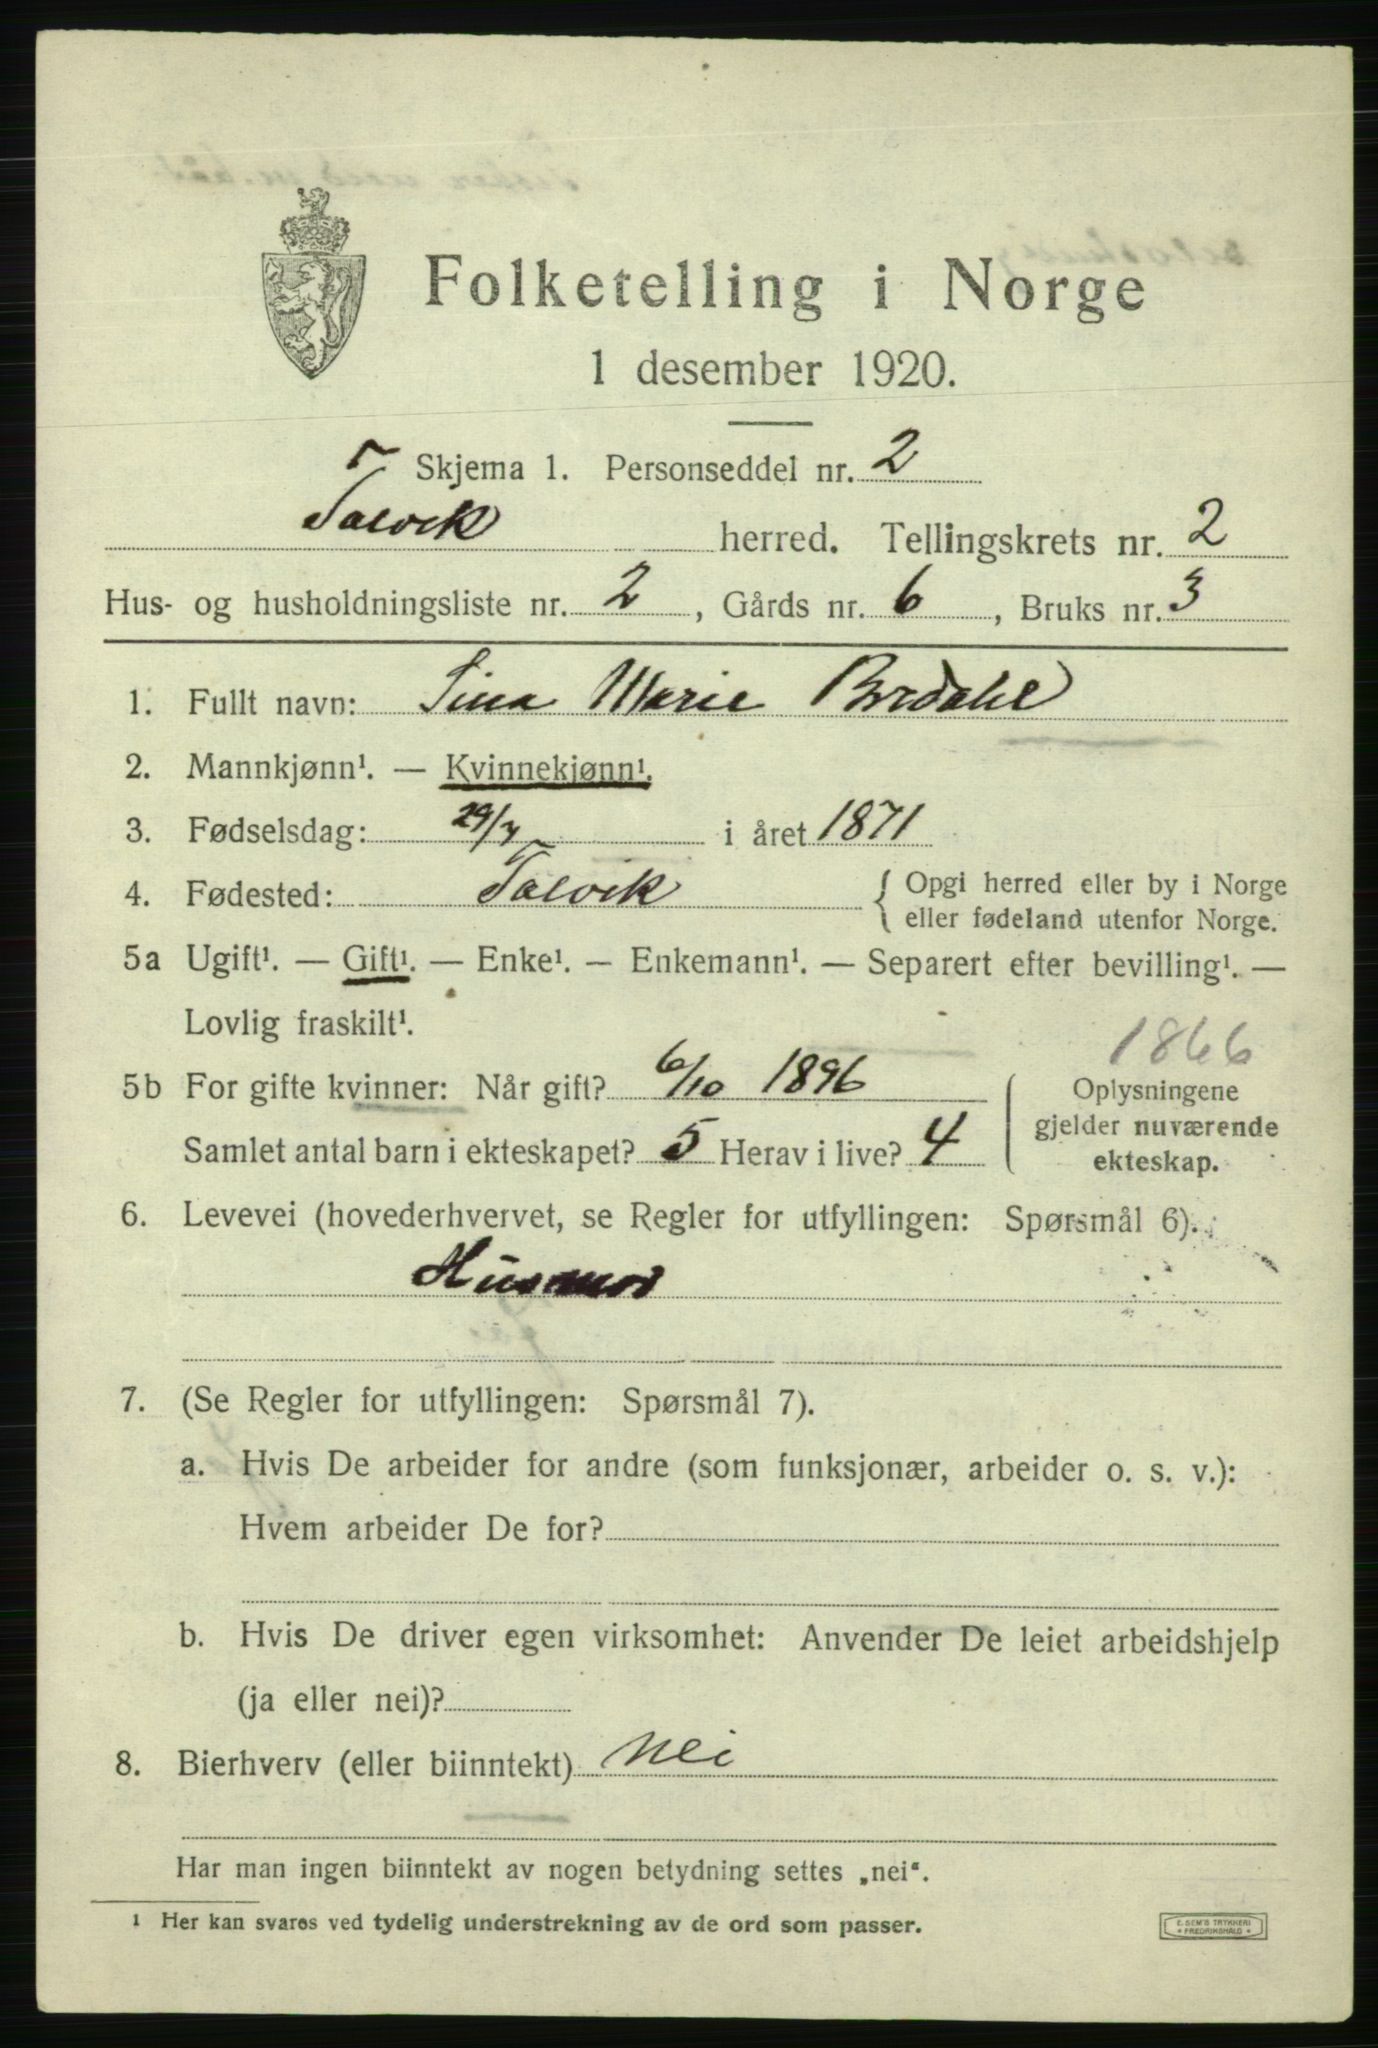 Folketelling i Norge
1 desember 1920.
Skjema 1. Personseddel nr. 2
Talvik herred. Tellingskrets nr. 2
Hus- og husholdningsliste nr. 2, Gårds nr. 6, Bruks nr. 3
1. Fullt navn: Sina Marie Bredahl
2. Mannkjønn¹. — Kvinnekjønn¹.
3. Fødselsdag: 29/7 i året 1871
4. Fødested: Talvik { Opgi herred eller by i Norge
eller fødeland utenfor Norge.
5a Ugift¹. — Gift¹. — Enke¹. — Enkemann¹. — Separert efter bevilling¹. —
Lovlig fraskilt¹.
1866
5b For gifte kvinner: Når gift? 6/10 1896
Samlet antal barn i ekteskapet? 5 Herav i live? 4
Oplysningene
gjelder nuværende
ekteskap.
6. Levevei (hovederhvervet, se Regler for utfyllingen: Spørsmål 6).
Husmor
7. (Se Regler for utfyllingen: Spørsmål 7).
a. Hvis De arbeider for andre (som funksjonær, arbeider o. s. v.):
Hvem arbeider De for?
b. Hvis De driver egen virksomhet: Anvender De leiet arbeidshjelp
(ja eller nei)?
8. Bierhverv (eller biinntekt) Nei
Har man ingen biinntekt av nogen betydning settes „nei“.
¹ Her kan svares ved tydelig understrekning av de ord som passer.
E. SEM'S TRYKKERI
* FREDRIKSHALD *